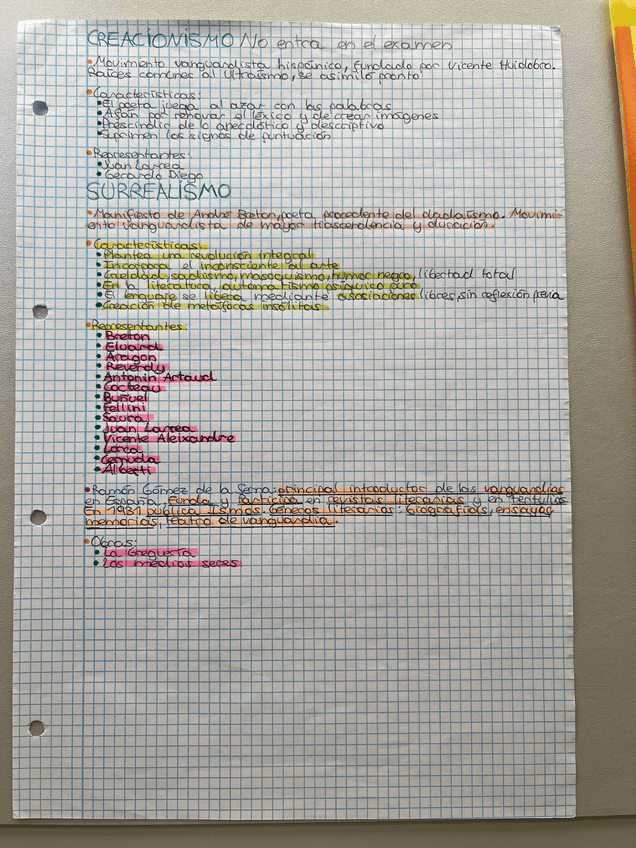 CREACIONISMO No entra en el examen
• Movimiento vanguardista hispánico, fundado por Vicente Huidobro.
Raíces comunes al Ultraísmo, se asimiló pronto
• Características:
• El poeta juega al azar con las palabras
• Afán por renovar el léxico y de crear imágenes
• Prescindió de lo anecdótico y descriptivo
• Suprimen los signos de puntuación
• Representantes:
• Juan Larrea
• Gerardo Diego
SURREALISMO
• Manifiesto de André Breton, poeta procedente del dadaísmo. Movimi-
ento vanguardista de mayor trascendencia y duración.
• Características:
• Plantea una revolución integral
• Incorpora el inconsciente al arte
• sadismo, masoquismo, humor negro, libertad total
• En la literatura, automatismo psíquico puro
• El lenguaje se libera mediante asociaciones libres, sin reflexión previa
• Creación de metáforas insólitas
• Representantes:
• Breton
• Eluard
• Aragon
• Reverdy
• Antonin Artaud
• Cocteau
• Buñuel
• Fellini
• Saura
• Juan Larrea
• Vicente Aleixandre
• Lorca
• Cernuda
• Alberti
• Ramón Gómez de la Serna: principal introductor de las vanguardias
en España. Funda y participa en revistas literarias y en tertulias
En 1931 publica Ismos. Géneros literarios: biografías, ensayos
memorias, teatro de vanguardia.
• Obras:
• La Greguería
• Los medios seres